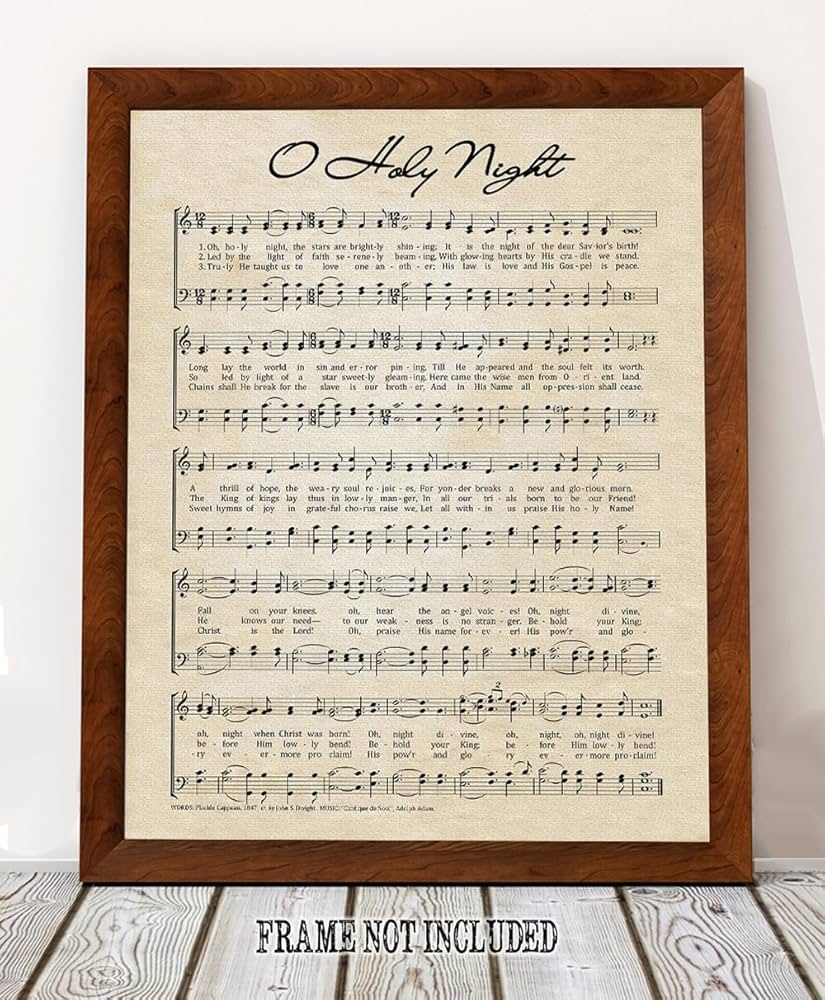 O Holy Night
1. Oh, ho - ly night, the stars are bright-ly shin - ing; It is the night of the dear Sav-ior's birth!
2. Led by the light of faith se - rene - ly beam - ing, With glow-ing hearts by His cra - dle we stand.
3. Tru - ly He taught us to love one an - oth - er; His law is love and His Gos - pel is peace.
Long lay the world in sin and er - ror pin - ing, Till He ap-peared and the soul felt its worth.
So led by light of a star sweet-ly gleam - ing, Here came the wise men from O - ri - ent land.
Chains shall He break for the slave is our broth - er, And in His Name all op - pres-sion shall cease.
A thrill of hope, the wea - ry soul re - joic - es, For yon-der breaks a new and glo-rious morn.
The King of kings lay thus in low - ly man-ger, In all our tri - als born to be our Friend!
Sweet hymns of joy in grate-ful cho-rus raise we, Let all with - in us praise His ho - ly Name!
Fall on your knees, oh, hear the an - gel voic - es! Oh, night di - vine,
He knows our need— to our weak - ness is no stran - ger. Be - hold your King;
Christ is the Lord! Oh, praise His name for - ev - er! His pow'r and glo -
2
oh, night when Christ was born! Oh, night di - vine, oh, night, oh, night di - vine!
be - fore Him low - ly bend! Be - hold your King; be - fore Him low - ly bend!
-ry ev - er - more pro claim! His pow'r and glo ry ev - er-more pro-claim!
WORDS: Placide Cappeau, 1847, by John S. Dwight. MUSIC: "Cantique de Noel", Adolph Adam.
FRAME NOT INCLUDED